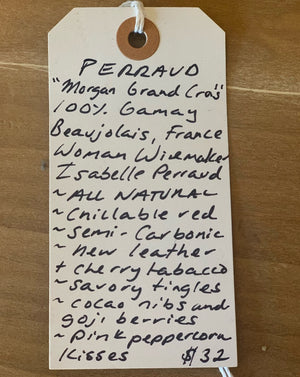 PERRAUD
"Morgan Grand Cras"
100% Gamay
Beaujolais, France
Woman Winemaker
Isabelle Perraud
~ ALL NATURAL
~ Chillable red
~ Semi-Carbonic
~ new leather
+ cherry tabacco
~ savory tingles
~ cocao nibs and
goji berries
~ Pink peppercorn
Kisses $32